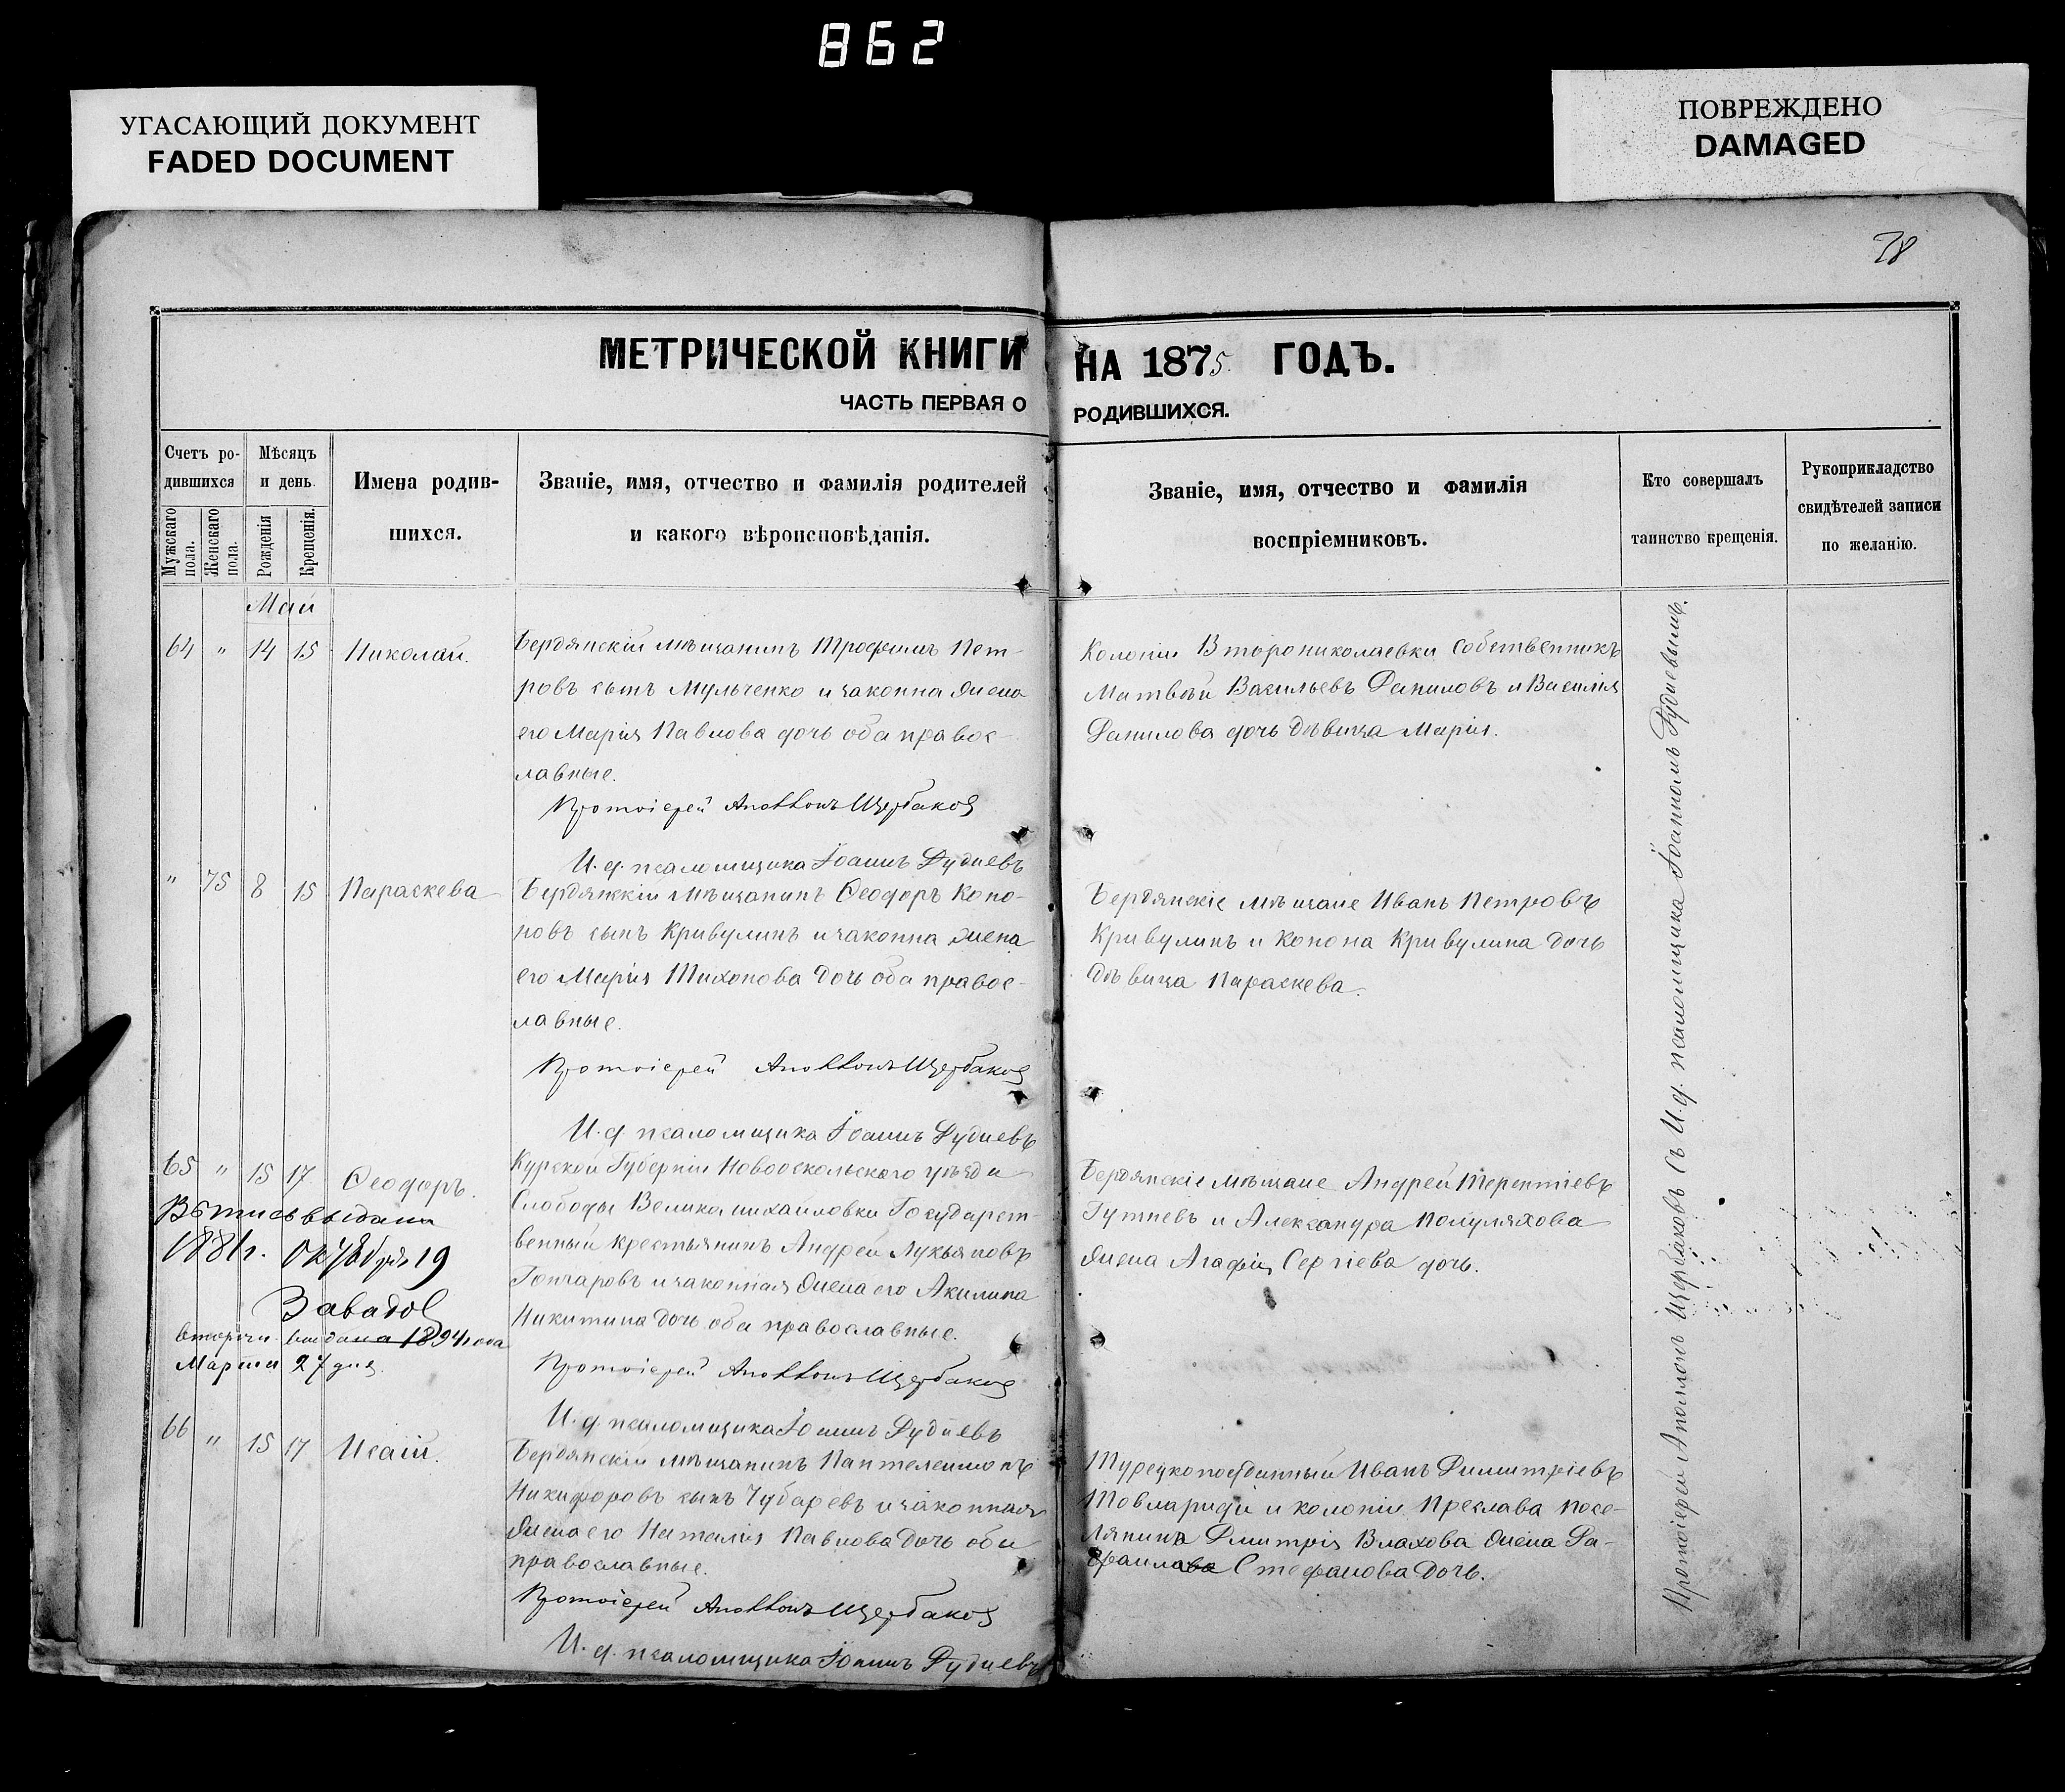 862
УГАСАЮЩИЙ ДОКУМЕНТ
FADED DOCUMENT
ПОВРЕЖДЕНО
DAMAGED
78
МЕТРИЧЕСКОЙ КНИГИ НА 1875 ГОДЪ.
ЧАСТЬ ПЕРВАЯ О РОДИВШИХСЯ.
Счетъ ро-
дившихся
Мужскаго пола.
Женскаго пола.
Мѣсяцъ
и день.
Рожденія
Крещенія.
Имена родив-
шихся.
Званіе, имя, отчество и фамилія родителей
и какого вѣроисповѣданія.
Званіе, имя, отчество и фамилія
воспріемниковъ.
Кто совершалъ
таинство крещенія.
Рукоприкладство
свидѣтелей записи
по желанію.
Май
64 " 14 15 Николай.
Бердянскій мѣщанинъ Трофимъ Пет-
ровъ сынъ Мульченко и законна жена
его Марія Павлова дочь оба правос-
лавные.
Протоіерей Аполлонъ Щербаковъ
И. д. псаломщика Іоаннъ Дудиевъ
Колоніи Второниколаевки собственникъ
Матвѣй Васильевъ Даниловъ и Василія
Данилова дочь дѣвица Марія.
" 75 8 15 Параскева
Бердянскій мѣщанинъ Ѳеодоръ Коно-
новъ сынъ Кривулинъ и законна жена
его Марія Тихонова дочь оба правос-
лавные.
Протоіерей Аполлонъ Щербаковъ
И. д. псаломщика Іоаннъ Дудиевъ
Бердянскіе мѣщане Иванъ Петровъ
Кривулинъ и Конона Кривулина дочь
дѣвица Параскева.
65 " 15 17 Ѳеодоръ.
Выпись выдана
1881г. Октября 19
вторично выдана 1894 года
Марта 27 дня.
Курской Губерніи Новооскольскаго уѣзда
Слободы Великомихайловки Государст-
венный крестьянинъ Андрей Лукьяновъ
Гончаровъ и законная жена его Акилина
Никитина дочь оба православные.
Протоіерей Аполлонъ Щербаковъ
И. д. псаломщика Іоаннъ Дудиевъ
Бердянскіе мѣщане Андрей Терентіевъ
и Александра Полуляхова
жена Агафія Сергіева дочь.
66 " 15 17 Исаій.
Бердянскій мѣщанинъ Пантелеимонъ
Никифоровъ сынъ Чубаревъ и законная
жена его Наталія Павлова дочь оба
православные.
Протоіерей Аполлонъ Щербаковъ
И. д. псаломщика Іоаннъ Дудиевъ
Турецкоподданный Иванъ Димитріевъ
и колоніи Преслава посе-
лянина Дмитрія Влахова жена
Стефанова дочь.
Протоіерей Аполлонъ Щербаковъ съ И. д. псаломщика Іоанномъ Дудиевымъ.